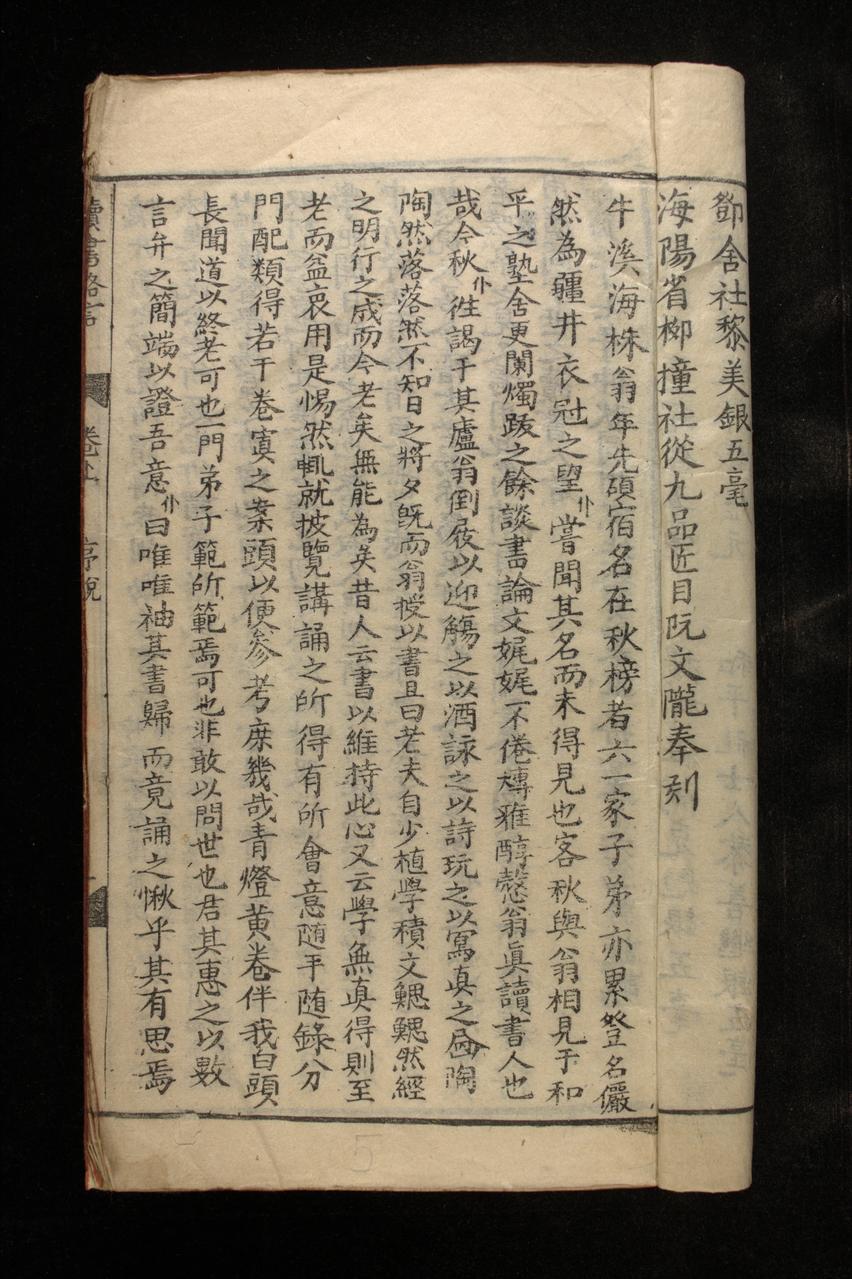 鄧舍社黎美銀五毫
海陽省柳撞社從九品匠目阮文隴奉刻
牛溪海株翁年先碩宿名在秋榜者六一家子弟亦累登名儼
然為疆井衣冠之望仆嘗聞其名而未得見也客秋與翁相見于和
平之塾舍更闌燭跋之餘談書論文娓娓不倦𫝊雅醇慤翁真讀書人也
哉今秋仆徃謁于其廬翁倒屐以迎觴之以酒詠之以詩玩之以寫真之啚陶
陶然落落然不知日之將夕既而翁授以書且曰老夫自少植學積文鰓鰓然經
之明行之咸而今老矣無能為矣昔人云書以維持此心又云學無真得則至
老而益衰用是惕然輒就披覽講誦之所得有所會意随手随錄分
門配類得若干卷寘之案頭以便參考庶幾哉青燈黃卷伴我白頭
長聞道以終老可也一門弟子範所範焉可也非敢以問世也君其惠之以數
言弁之簡端以證吾意仆曰唯唯袖其書歸而竟誦之愀乎其有思焉
讀書略言 卷上 序說
5